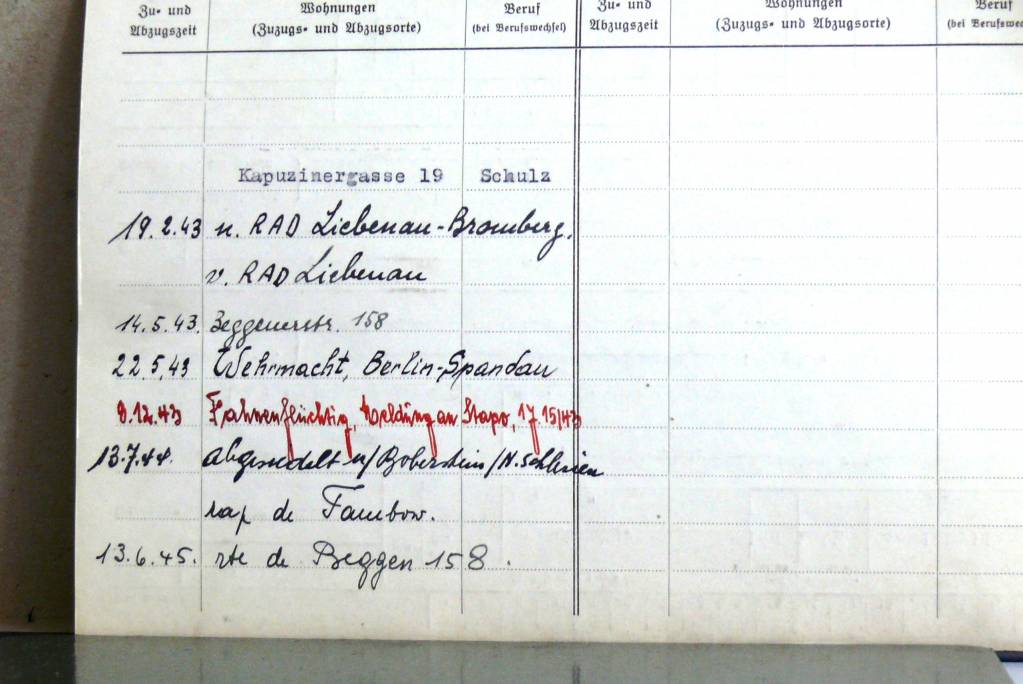 Zu- und Abzugszeit
Wohnungen (Zuzugs- und Abzugsorte)
Beruf (bei Berufswechsel)
Zu- und Abzugszeit
Wohnungen (Zuzugs- und Abzugsorte)
Beruf (bei Berufswec
Kapuzinergasse 19 Schulz
19.2.43 n. RAD Liebenau-Bromberg.
v. RAD Liebenau
14.5.43. Beggenerstr. 158
22.5.43 Wehrmacht, Berlin-Spandau
9.12.43 Fahnenflüchtig, Meldung an Stapo, 17.15/43
13.7.44. abgesiedelt n/Boberstein/N.Schlesien
rap de Tambow.
13.6.45. rte de Beggen 158.